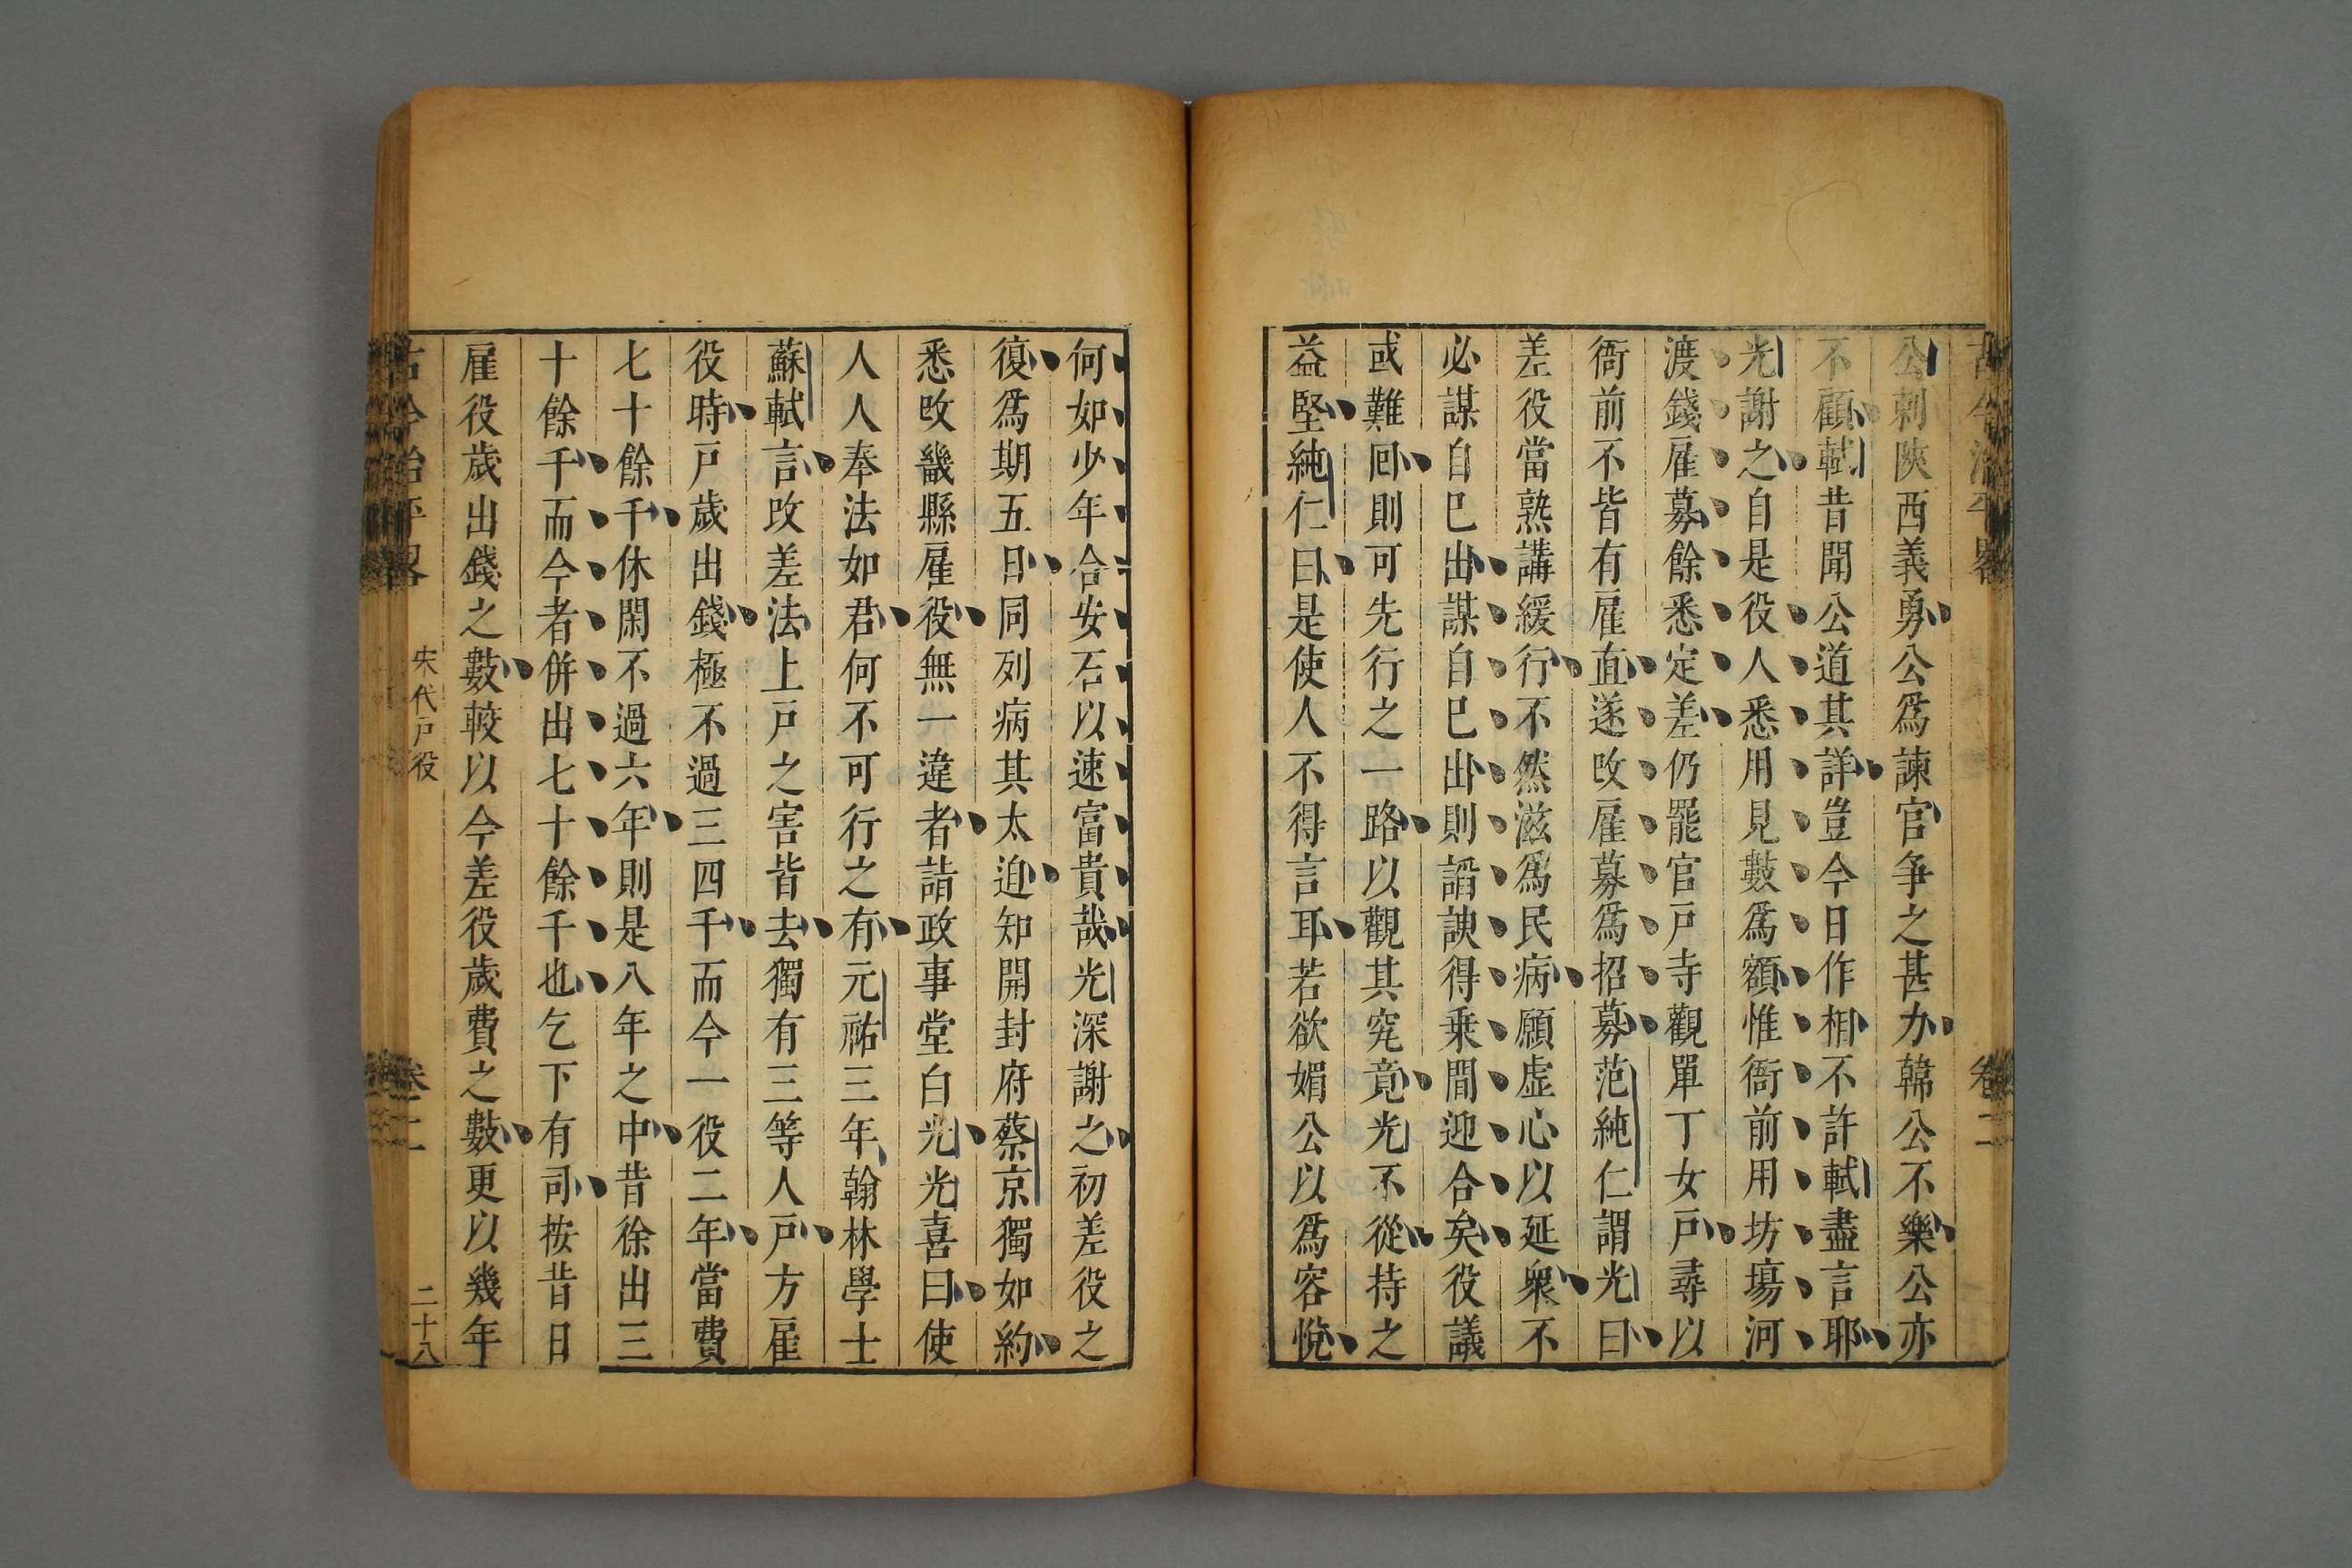 古今治平畧
卷二
公刺陝西義勇公爲諫官爭之甚力韓公不樂公亦
不顧軾昔聞公道其詳豈今日作相不許軾盡言耶
光謝之自是役人悉用見數爲額惟衙前用坊塲河
渡錢雇募餘悉定差仍罷官戸寺觀單丁女戸尋以
衙前不皆有雇直遂攺雇募爲招募范純仁謂光曰
差役當熟講緩行不然滋爲民病願虛心以延衆不
必謀自巳出謀自巳出則諂諛得乗間迎合矣役議
或難回則可先行之一路以觀其究竟光不從持之
益堅純仁曰是使人不得言耳若欲媚公以爲容悅
何如少年合安石以速富貴哉光深謝之初差役之
復爲期五日同列病其太迫知開封府蔡京獨如約
悉攺畿縣雇役無一違者詣政事堂白光光喜曰使
人人奉法如君何不可行之有元祐三年翰林學士
蘇軾言攺差法上戸之害皆去獨有三等人戸方雇
役時戸歲出錢極不過三四千而今一役二年當費
七十餘千休閑不過六年則是八年之中昔徐出三
十餘千而今者併出七十餘千也乞下有司按昔日
雇役歲出錢之數較以今差役歲費之數更以幾年
古今治平畧
宋代戸役
卷二
二十八